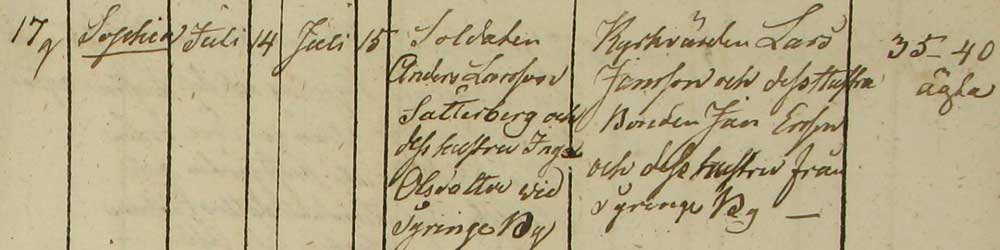 17 Sophia Juli 14 Juli 15
Soldaten
Anders Larsson
Sätterberg och
dess hustru Inga
Olsdotter wid
Tyringe By
Kyrkvärden Lars
Jansson och dess Hustru
Bonden Jan Ersson
och dess hustru från
Tyringe By —
35-40
ägta